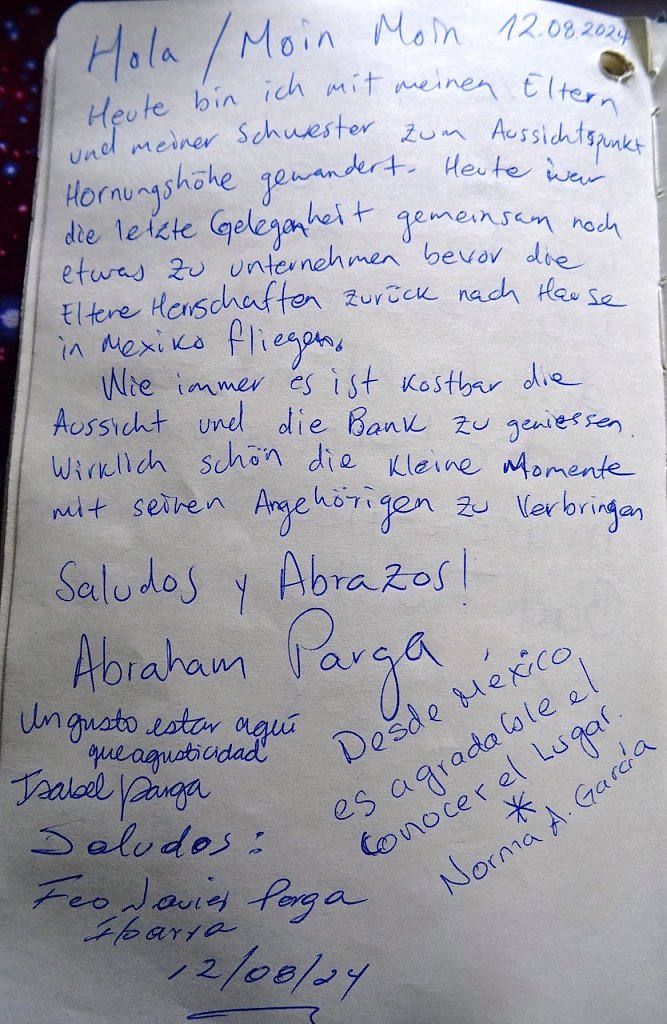 Hola / Moin Moin 12.08.2024
Heute bin ich mit meinen Eltern
und meiner Schwester zum Aussichtspunkt
Hornungshöhe gewandert. Heute war
die letzte Gelegenheit gemeinsam noch
etwas zu unternehmen bevor die
Eltere Herrschaften zurück nach Hause
in Mexiko fliegen.
Wie immer es ist kostbar die
Aussicht und die Bank zu geniessen.
Wirklich schön die kleine Momente
mit seinen Angehörigen zu Verbringen
Saludos y Abrazos!
Abraham Parga
Un gusto estar aquí
que agusticidad
Isabel Parga
Saludos:
Fco Javier Parga
Ibarra
12/08/24
Desde México,
es agradable el
conocer el Lugar.
*
Norma A. García